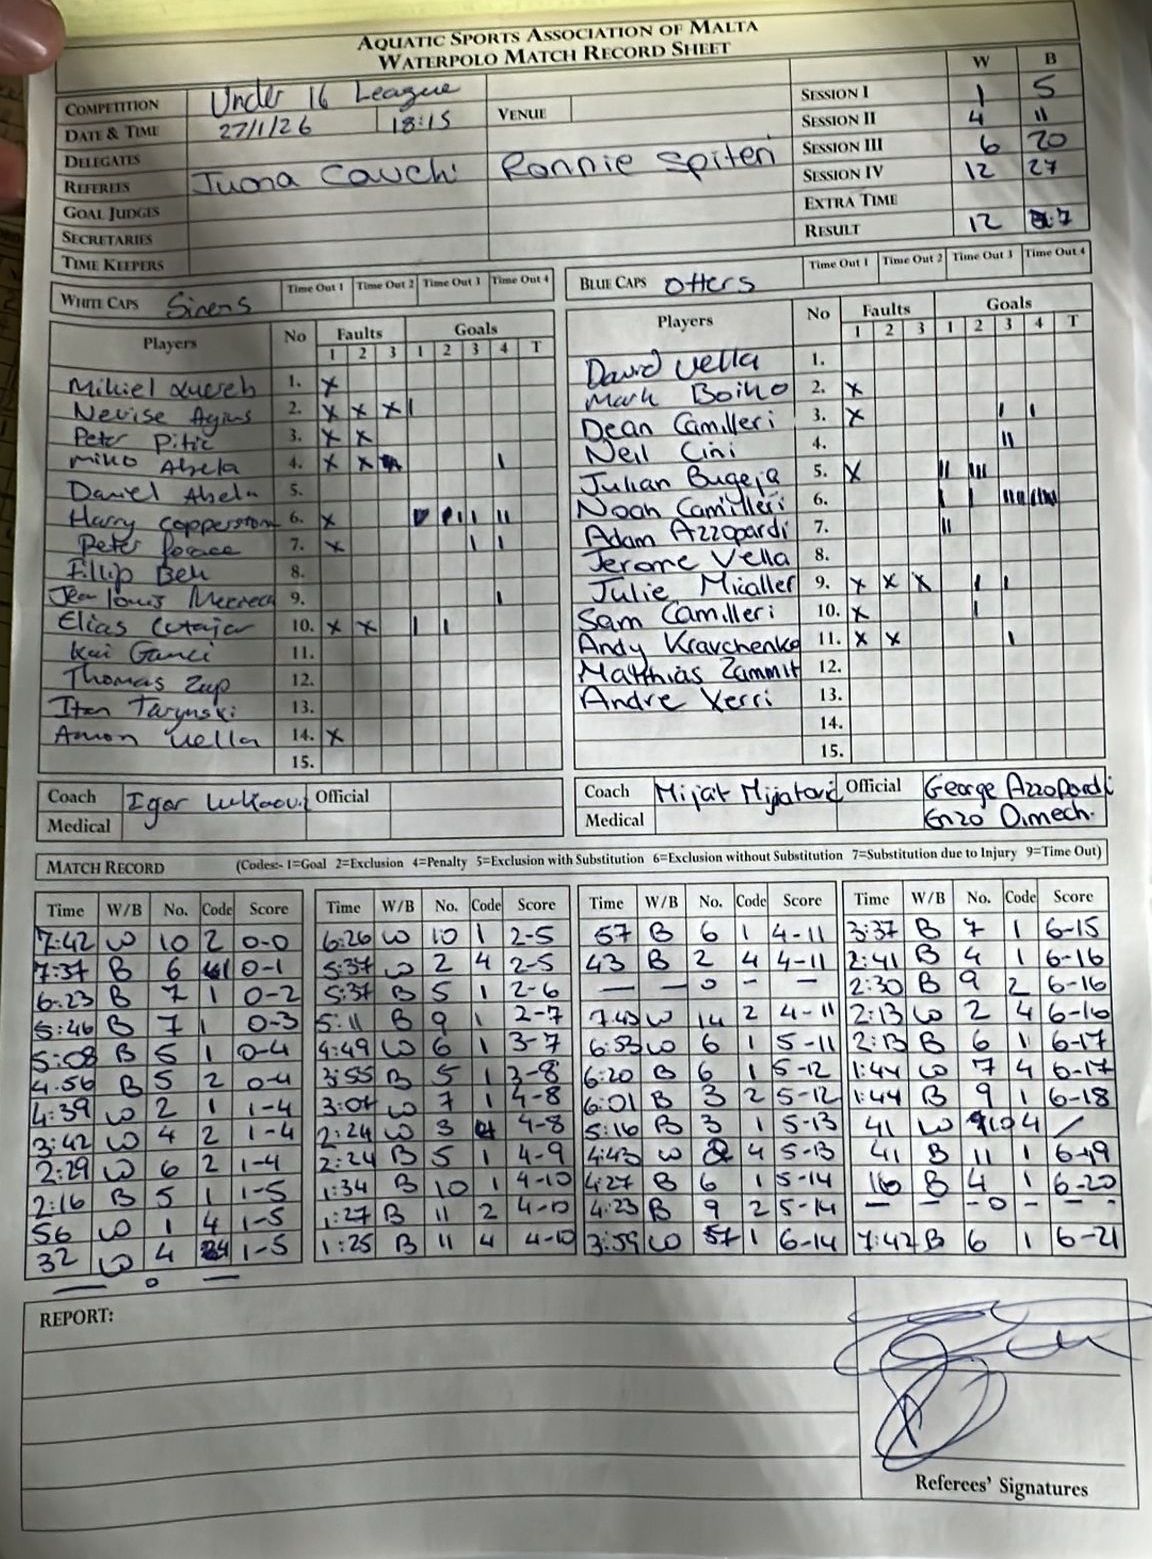 AQUATIC SPORTS ASSOCIATION OF MALTA
WATERPOLO MATCH RECORD SHEET
W B
COMPETITION Under 16 League SESSION I 1 5
DATE & TIME 27/1/26 18:15 VENUE SESSION II 4 11
DELEGATES SESSION III 6 20
REFEREES Ronnie Spiteri SESSION IV 12 27
GOAL JUDGES EXTRA TIME
SECRETARIES RESULT 12
TIME KEEPERS
WHITE CAPS Sirens Time Out 1 Time Out 2 Time Out 3 Time Out 4
Players No Faults Goals
1 2 3 1 2 3 4 T
Mikiel 1. X
Nevise Agius 2. X X X I
Peter Pitic 3. X X
Miko Abela 4. X X I
Daniel Abela 5.
Harry Copperstone 6. X
Peter 7. X I I
Fillip Bell 8.
Jean Louis 9. I
Elias Cutajar 10. X X I I
Kai Gauci 11.
Thomas Zup 12.
13.
Vella 14. X
15.
Coach Igor Official
Medical
BLUE CAPS Otters Time Out 1 Time Out 2 Time Out 3 Time Out 4
Players No Faults Goals
1 2 3 1 2 3 4 T
David Vella 1.
Mark Boiko 2. X
Dean Camilleri 3. X I I
Neil Cini 4. II
Julian Bugeja 5. X II III
Noah Camilleri 6.
Adam Azzopardi 7. II
Jerome Vella 8.
Julie Micallef 9. X X X I I
Sam Camilleri 10. X I
Andy Kravchenko 11. X X I
Matthias Zammit 12.
Andre Xerri 13.
14.
15.
Coach Mijat Mijatović Official George Azzopardi
Medical Enzo Dimech.
MATCH RECORD (Codes:- 1=Goal 2=Exclusion 4=Penalty 5=Exclusion with Substitution 6=Exclusion without Substitution 7=Substitution due to Injury 9=Time Out)
Time W/B No. Code Score
7:42 W 10 2 0-0
7:37 B 6 1 0-1
6:23 B 7 1 0-2
5:46 B 7 1 0-3
5:08 B 5 1 0-4
4:56 B 5 2 0-4
4:39 W 2 1 1-4
3:42 W 4 2 1-4
2:29 W 6 2 1-4
2:16 B 5 1 1-5
56 W 1 4 1-5
32 W 4 4 1-5
— o —
Time W/B No. Code Score
6:26 W 10 1 2-5
5:37 W 2 4 2-5
5:37 B 5 1 2-6
5:11 B 9 1 2-7
4:49 W 6 1 3-7
3:55 B 5 1 3-8
3:07 W 7 1 4-8
2:24 W 3 4 4-8
2:24 B 5 1 4-9
1:34 B 10 1 4-10
1:27 B 11 2 4-10
1:25 B 11 4 4-10
Time W/B No. Code Score
57 B 6 1 4-11
43 B 2 4 4-11
— — o — —
7:43 W 14 2 4-11
6:53 W 6 1 5-11
6:20 B 6 1 5-12
6:01 B 3 2 5-12
5:16 B 3 1 5-13
4:43 W 2 4 5-13
4:27 B 6 1 5-14
4:23 B 9 2 5-14
3:59 W 1 6-14
Time W/B No. Code Score
3:37 B 7 1 6-15
2:41 B 4 1 6-16
2:30 B 9 2 6-16
2:13 W 2 4 6-16
2:13 B 6 1 6-17
1:44 W 7 4 6-17
1:44 B 9 1 6-18
41 W 10 4 /
41 B 11 1 6-19
16 B 4 1 6-20
— — - o - — -
7:42 B 6 1 6-21
REPORT:
Referees' Signatures